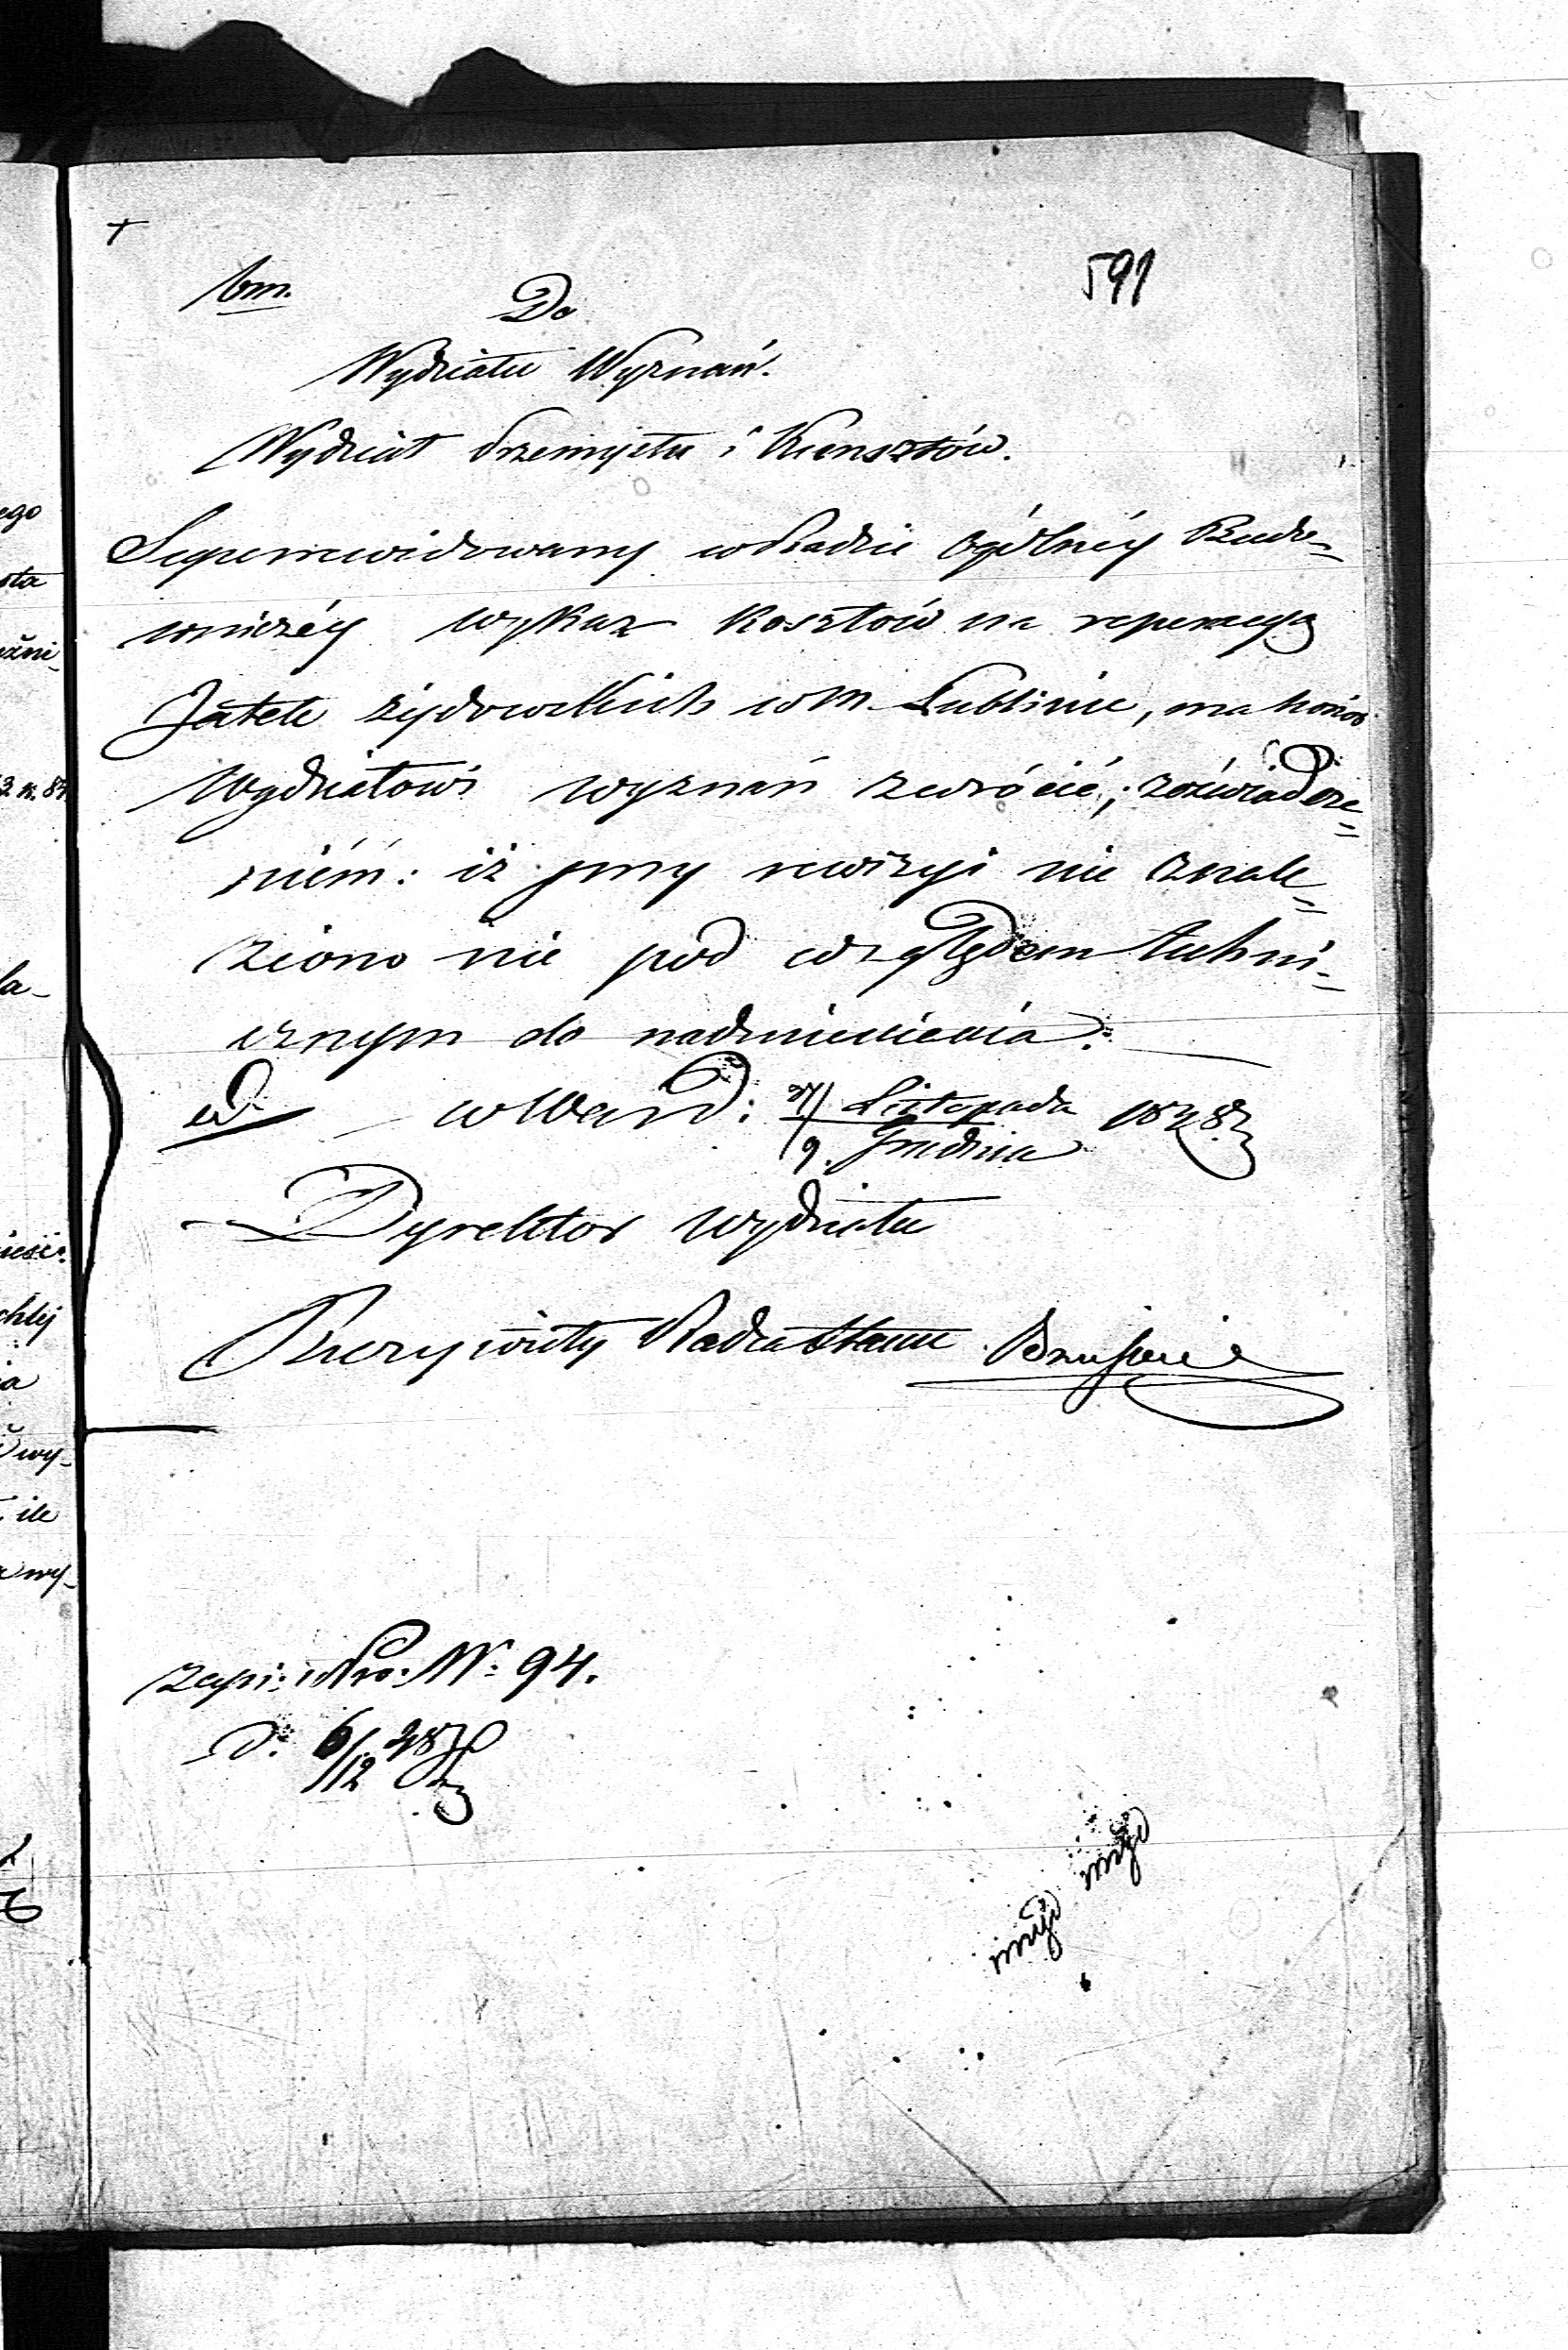 591
bm.
Do
Wydziału Wyznań.
Wydział Przemysłu i Kunsztów.
Superrewidowany w Radzie Ogólnéy Budo=
wniczéy wykaz Kosztów na reperacyą
Jatek żydowskich w M. Lublinie, ma honor
Wydziałowi wyznań zwrócić; z oświadcze=
niém: iż przy rewizyi nie znale=
ziono nic pod względem techni=
cznym do nadmienienia.
w Warsz: 27/ Listopada 1838
/9. Grudnia
Dyrektor Wydziału
Rzeczywisty Radca Stanu
zapi: N: 94.
d: 6/12 38
ego
sta
źni
3 k. 87
la-
chléj
ia
wy-
ile
wy-